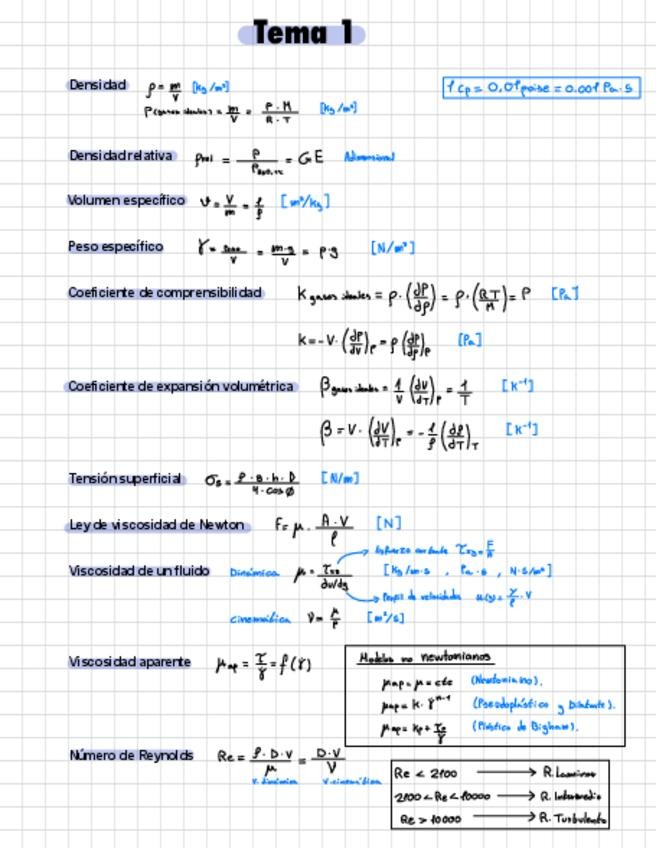 Tema 1
Densidad ρ = m/V [kg/m³]
ρ(gases ideales) = m/V = P·M/R·T [kg/m³]
1 cp = 0,01 poise = 0.001 Pa·s
Densidad relativa ρrel = ρ/ρH₂O,4ºC = GE Adimensional
Volumen específico v = V/m = 1/ρ [m³/kg]
Peso específico γ = peso/V = m·g/V = ρ·g [N/m³]
Coeficiente de comprensibilidad K gases ideales = ρ·(dP/dρ) = ρ·(RT/M) = P [Pa]
K = -V·(dP/dV)P = ρ(dP/dρ)P [Pa]
Coeficiente de expansión volumétrica β gases ideales = 1/V (dV/dT)P = 1/T [K⁻¹]
β = V·(dV/dT)P = -1/ρ (dρ/dT)T [K⁻¹]
Tensión superficial σs = ρ·g·h·D/4·cosø [N/m]
Ley de viscosidad de Newton F = μ·A·V/ℓ [N]
Esfuerzo cortante τxy = F/A
Viscosidad de un fluido Dinámica μ = τxy/du/dy [kg/m·s , Pa·s , N·s/m²]
Perfil de velocidades u(y) = y/ℓ·V
cinemática ν = μ/ρ [m²/s]
Viscosidad aparente μap = τ/γ̇ = f(γ̇)
Modelos no newtonianos
μap = μ = cte (Newtoniano).
μap = K·γ̇ⁿ⁻¹ (Pseudoplástico y Dilatante).
μap = Kp + τo/γ̇ (Plástico de Bigham).
Número de Reynolds Re = ρ·D·V/μ = D·V/ν
v.dinámica v.cinemática
Re < 2100 → R. Laminar
2100 < Re < 10000 → R. Intermedio
Re > 10000 → R. Turbulento